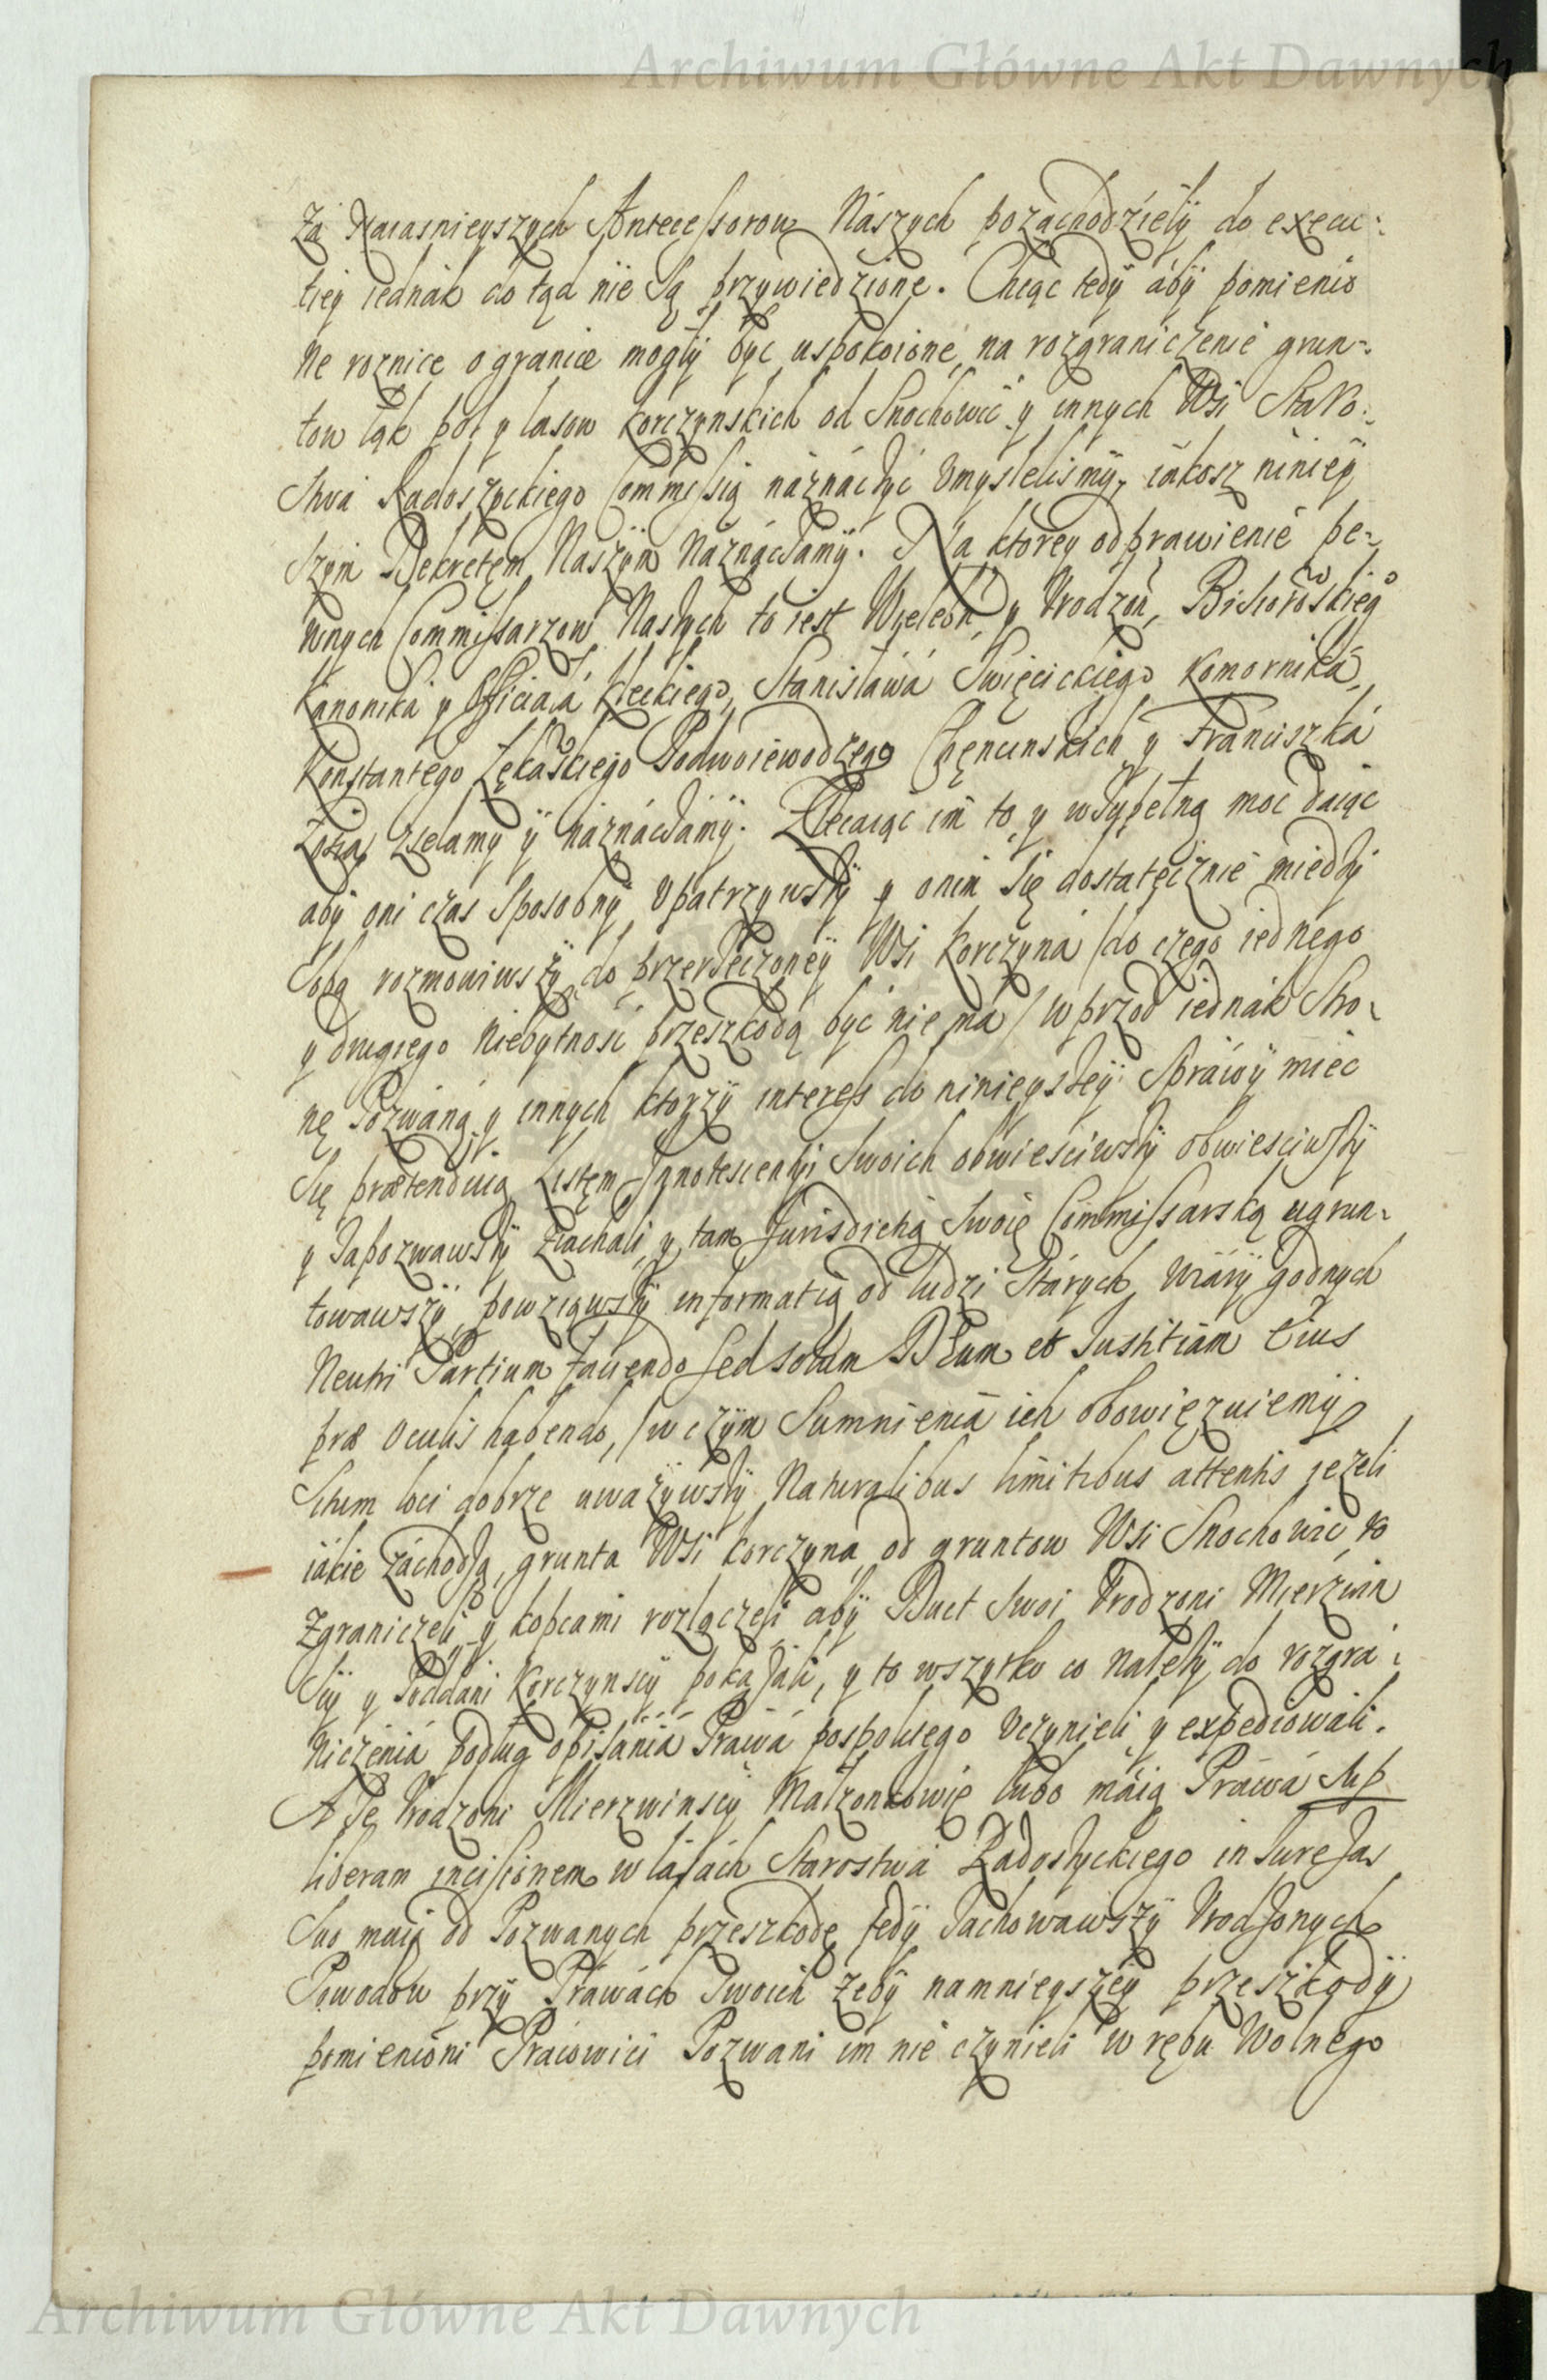 Archiwum Główne Akt Dawnych
Zá Náiasnieyszych Antecessorow Nászych pozáchodzieły do execu:
tiey iednák do tąd nie są przywiedzione. Chcąc tedy áby pomienio
ne roznice o granice mogły być uspokoione, na rozgraniczenie grun-
tow łąk pol y lasow Korczynskich od Snochowic y innych Wsi Staro:
stwá Radoszyckiego Commissią náznáczyć vmysleliśmy, iákosz niniey
szym Dekretem Nászym Náznáczamy. Na ktorey odprawienie pe-
wnych Commissarzow Naszych to iest Wieleb y Vrodzon,
Kanoniká y Officiałá Kieckiego, Stanisławá Swięcickiego Komorniká,
Konstantego Podwoiewodzego Chęncinskich y Franciszká
zsełamy y náznáczamy. Zlecaiąc im to y wszupełną moc daiąc
aby oni czas sposobny vpatrzywszy y onim się dostatecznie miedzy
sobą rozmowiwszy do przerzeczoney Wsi Korczyna /do czego iednego
y drugiego niebytność przeszkodą być nie má/ wprzod iednák Stro-
nę Pozwáną y innych ktorzy interess do ninieyszey Spráwy mieć
się prætenduią Listem Innotescentyi swoich obwieściwszy obwiesciwszy
y zapozwawszy ziachali, y tam Jurisdictią swoię Commissarską ugrun-
towawszy, powziąwszy informatią od ludzi Stárych, wiáry godnych
Neutri Partium favendo sed solum DEum et Justitiam Eius
præ oculis habendo, /w czym Sumnieniá ich obowięzuiemy/
Situm loci dobrze uważywszy Naturalibus limitibus attentis ieżeli
iákie záchodzą, grunta Wsi Korczyna od gruntow Wsi Snochowic ro
zgraniczeli y kopcami rozłączeli aby Duct swoi Vrodzoni Mierzwin
scy y Poddáni Korczynscy pokazali, y to wszytko co należy do rozgra-
niczeniá podług opisániá Práwá pospolitego vczynieli y expediowáli.
A że Vrodzoni Mierzwinscy Małzonkowie lubo máią Práwá sup
liberam incisionem w lásách Starostwá Rádoszyckiego in sure
suo máią od Pozwanych przeszkodę tedy záchowáwszy Vrodzonych
Powodow przy Práwách swoich żeby namnieyszey przeszkody
pomienioni Pozwani im nie czynieli w rębu Wolnego
Archiwum Główne Akt Dawnych